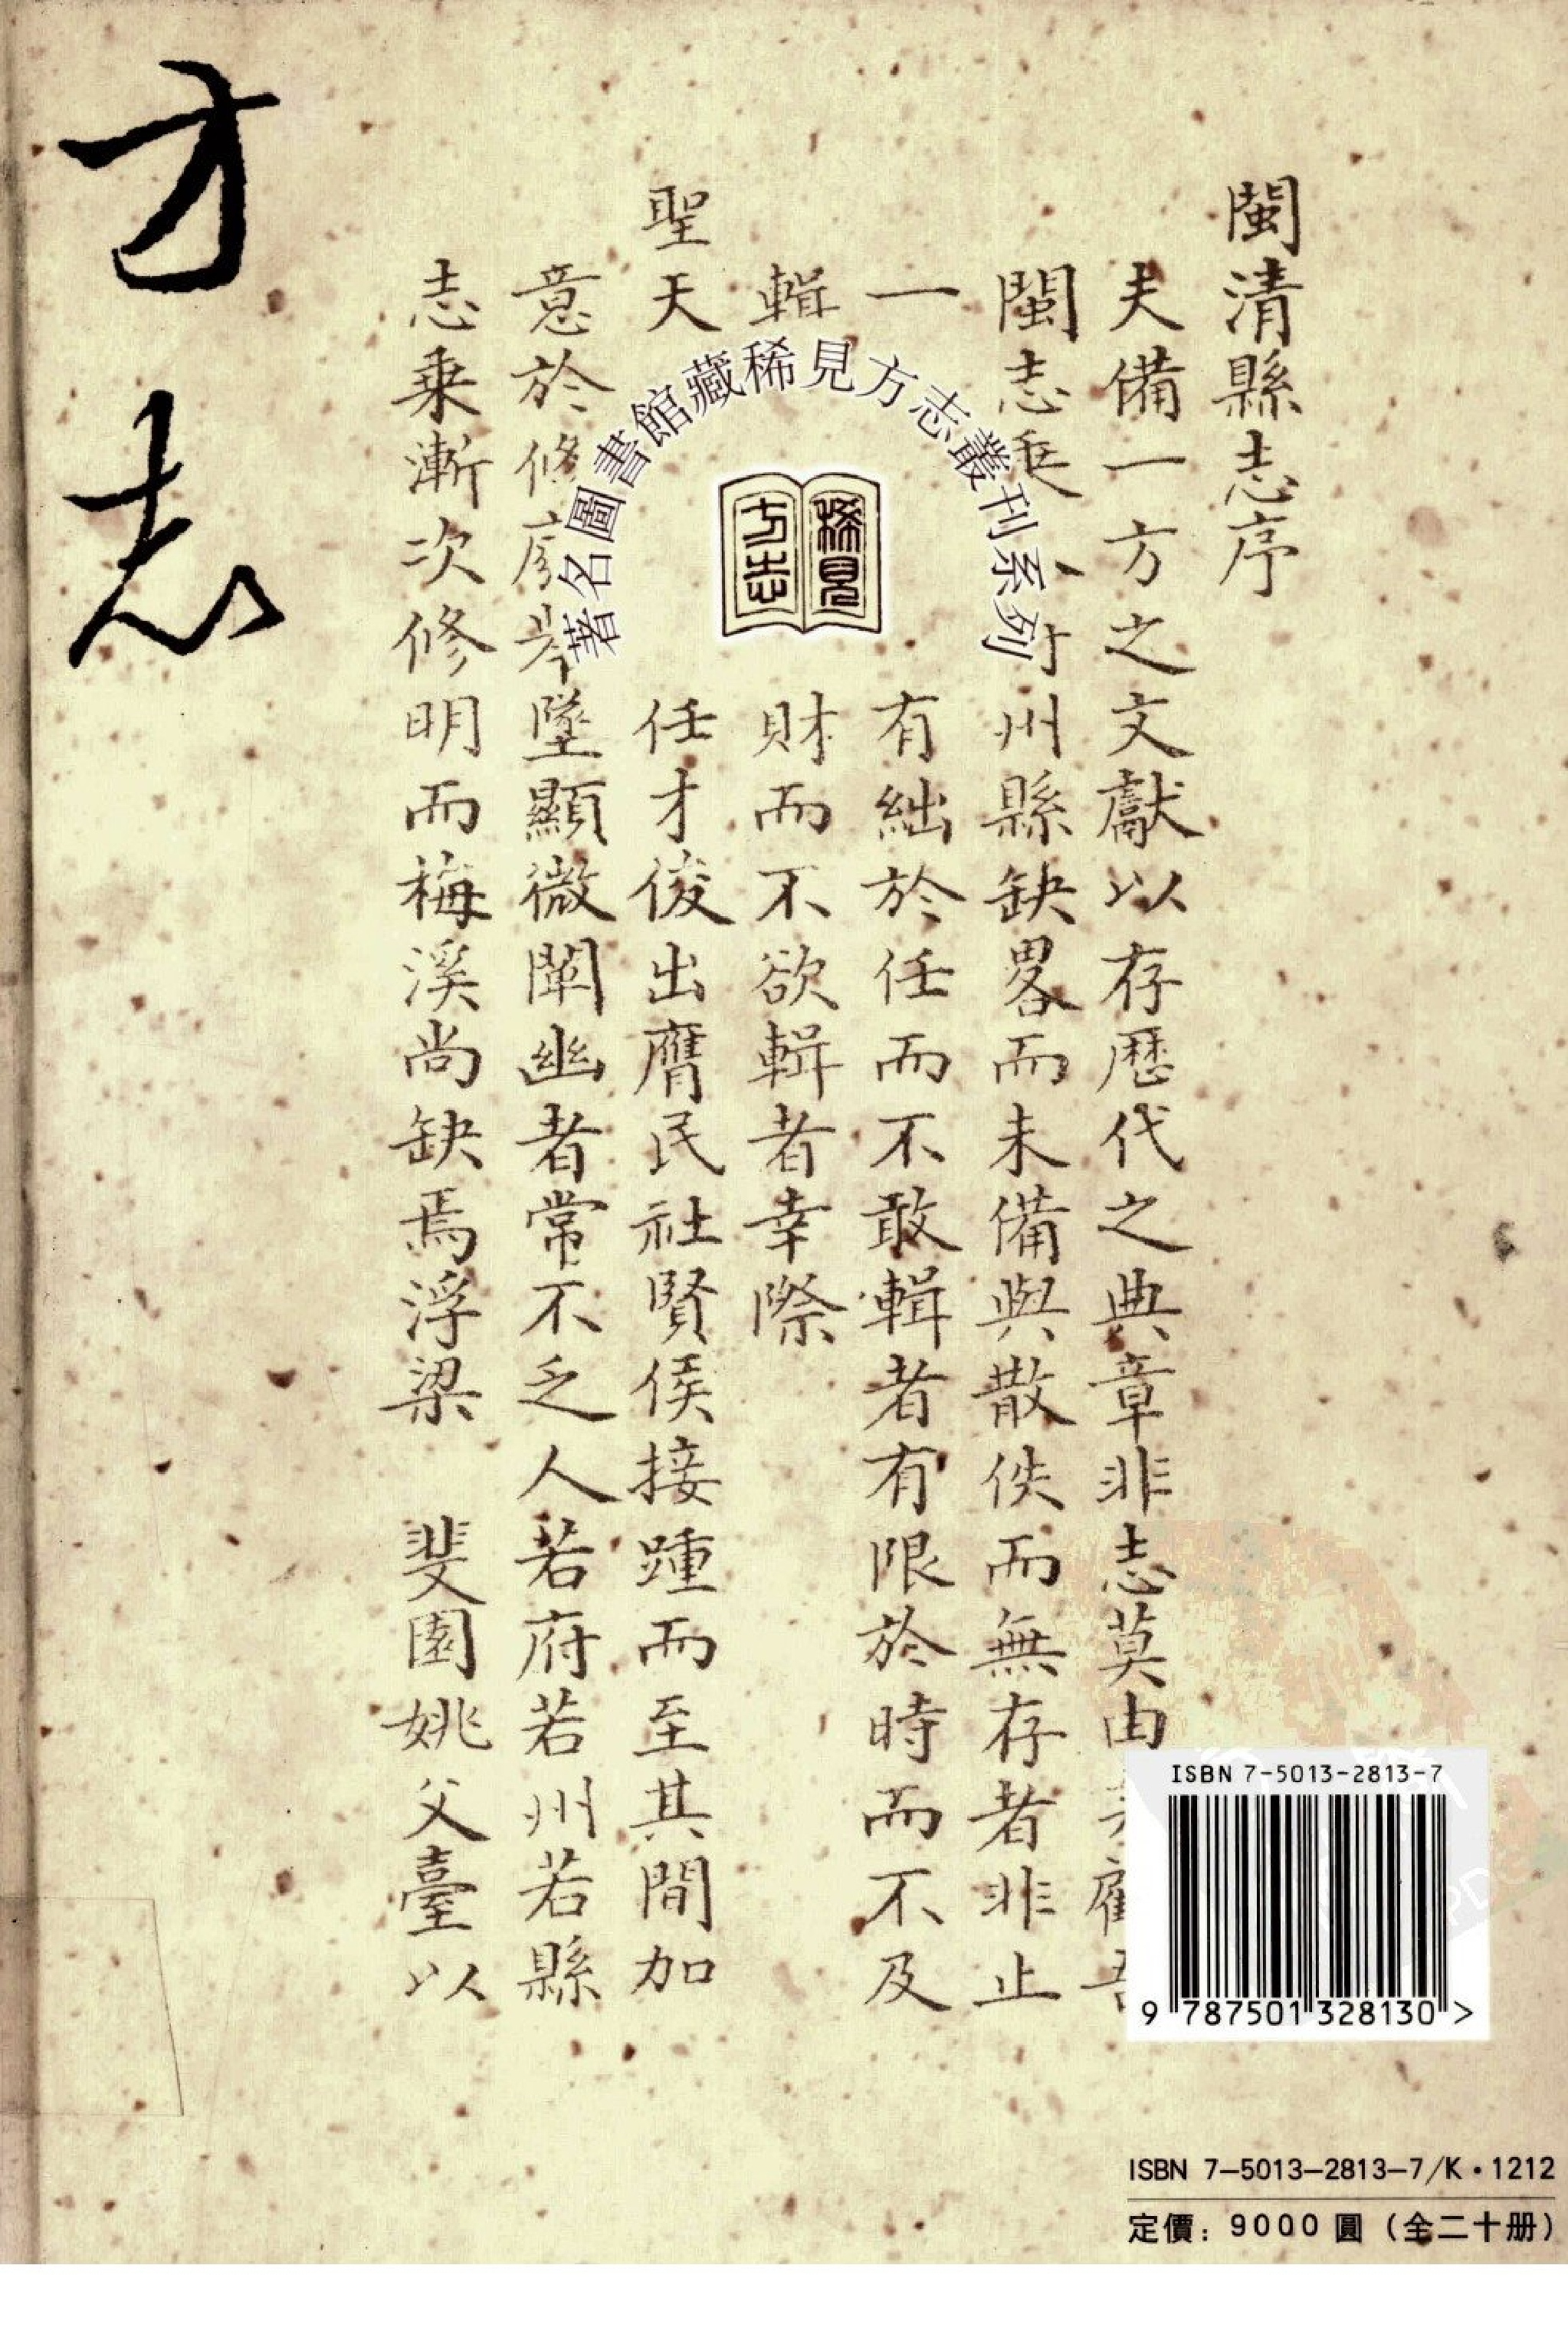 閩清縣志序
夫備一方之文獻以存歷代之典章非志莫由
閩志乘州縣缺畧而未備與散佚而無存者非止
一有絀於任而不敢輯者有限於時而不及
輯財而不欲輯者幸際
聖天任才俊出膺民社賢侯接踵而至其間加
意於修廢舉墜顯微闡幽者常不乏人若府若州若縣
志乘漸次修明而梅溪尚缺焉浮梁 斐園姚父臺以
方志
著名圖書館藏稀見方志叢刊系列
稀見方志
ISBN 7-5013-2813-7
9 787501 328130 >
ISBN 7-5013-2813-7/K·1212
定價：9000 圓（全二十册）